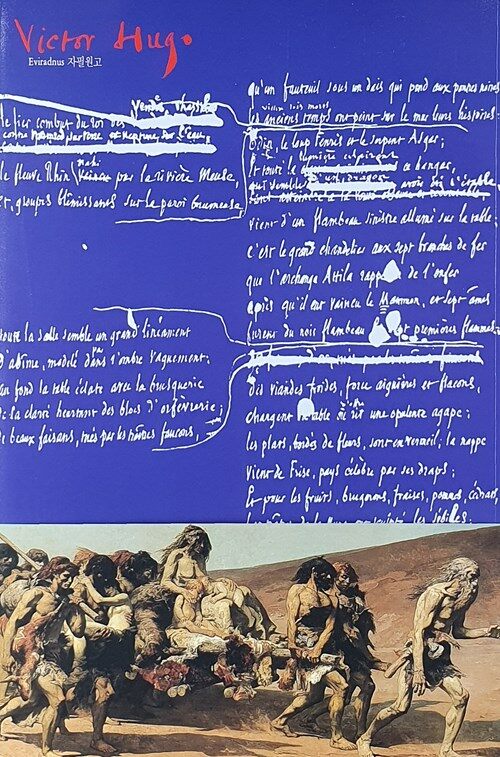 Victor Hugo
Eviradnus 자필원고
le fier combat du roi des Vendes Thassilo
contre Nemrod sur terre et Neptune sur l'eau,
le fleuve Rhin par la rivière Meuse,
et, groupes blêmissants sur la paroi brumeuse,
toute la salle semble un grand linéament
D'abîme, modelé dans l'ombre vaguement;
au fond la table éclate avec la brusquerie
de la clarté heurtant des blocs d'orfèvrerie;
de beaux faisans, tués par les traîtres faucons,
qu'un fauteuil sous un dais qui pend aux poutres noires
les anciens temps ont peint sur le mur leurs histoires
Odin, le loup Fenris et le serpent Asgar;
Et toute la lumière éclairant ce hangar,
qui semble
vient d'un flambeau sinistre allumé sur la table;
c'est le grand chandelier aux sept branches de fer
que l'archange Attila rapporta de l'enfer
après qu'il eut vaincu le Mammon, et sept âmes
furent du noir flambeau les premières flammes.
Des viandes froides, force aiguières et flacons,
chargent la table où rit une opulente agape;
les plats, bordés de fleurs, sont en vermeil; la nappe
Vient de Frise, pays célèbre par ses draps;
Et pour les fruits, brugnons, fraises, pommes, cédrats,